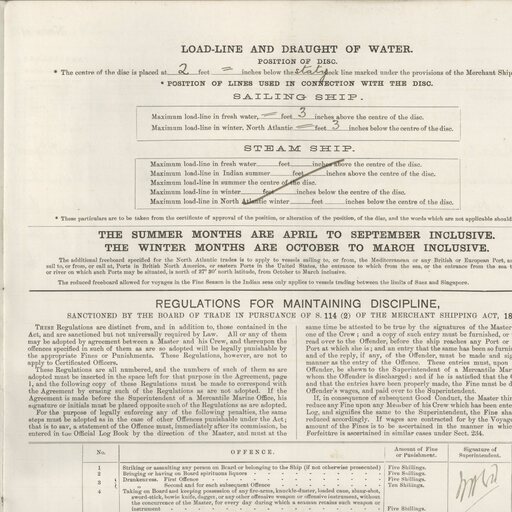 LOAD-LINE AND DRAUGHT OF WATER.
POSITION OF DISC.
* The centre of the disc is placed at 2 feet = inches below the staty deck line marked under the provisions of the Merchant Ship
* POSITION OF LINES USED IN CONNECTION WITH THE DISC.
SAILING SHIP.
Maximum load-line in fresh water, = feet 3 inches above the centre of the disc.
Maximum load-line in winter, North Atlantic = feet 3 inches below the centre of the disc.
STEAM SHIP.
Maximum load-line in fresh water feet inches above the centre of the disc.
Maximum load-line in Indian summer feet inches above the centre of the disc.
Maximum load-line in summer the centre of the disc.
Maximum load-line in winter feet inches below the centre of the disc.
Maximum load-line in North Atlantic winter feet inches below the centre of the disc.
* These particulars are to be taken from the certificate of approval of the position, or alteration of the position, of the disc, and the words which are not applicable should
THE SUMMER MONTHS ARE APRIL TO SEPTEMBER INCLUSIVE.
THE WINTER MONTHS ARE OCTOBER TO MARCH INCLUSIVE.
The additional freeboard specified for the North Atlantic trades is to apply to vessels sailing to, or from, the Mediterranean or any British or European Port, a
sail to, or from, or call at, Ports in British North America, or eastern Ports in the United States, the entrance to which from the sea, or the entrance from the sea t
or river on which such Ports may be situated, is north of 37° 30' north latitude, from October to March inclusive.
The reduced freeboard allowed for voyages in the Fine Season in the Indian seas only applies to vessels trading between the limits of Suez and Singapore.
REGULATIONS FOR MAINTAINING DISCIPLINE,
SANCTIONED BY THE BOARD OF TRADE IN PURSUANCE OF S. 114 (2) OF THE MERCHANT SHIPPING ACT, 18
THESE Regulations are distinct from, and in addition to, those contained in the
Act, and are sanctioned but not universally required by Law. All or any of them
may be adopted by agreement between a Master and his Crew, and thereupon the
offences specified in such of them as are so adopted will be legally punishable by
the appropriate Fines or Punishments. These Regulations, however, are not to
apply to Certificated Officers.
These Regulations are all numbered, and the numbers of such of them as are
adopted must be inserted in the space left for that purpose in the Agreement, page
1, and the following copy of these Regulations must be made to correspond with
the Agreement by erasing such of the Regulations as are not adopted. If the
Agreement is made before the Superintendent of a Mercantile Marine Office, his
signature or initials must be placed opposite such of the Regulations as are adopted.
For the purpose of legally enforcing any of the following penalties, the same
steps must be adopted as in the case of other Offences punishable under the Act;
that is to say, a statement of the Offence must, immediately after its commission, be
entered in the Official Log Book by the direction of the Master, and must at the
same time be attested to be true by the signatures of the Master
one of the Crew; and a copy of such entry must be furnished, or
read over to the Offender, before the ship reaches any Port or
Port at which she is; and an entry that the same has been so furnish
and of the reply, if any, of the Offender, must be made and sig
manner as the entry of the Offence. These entries must, upon
Offender, be shewn to the Superintendent of a Mercantile Mar
whom the Offender is discharged; and if he is satisfied that the O
and that the entries have been properly made, the Fine must be d
Offender's wages, and paid over to the Superintendent.
If, in consequence of subsequent Good Conduct, the Master thi
reduce any Fine upon any Member of his Crew which has been ente
Log, and signifies the same to the Superintendent, the Fine sha
reduced accordingly. If wages are contracted for by the Voyage
amount of the Fines is to be ascertained in the manner in which
Forfeiture is ascertained in similar cases under Sect. 234.
No. OFFENCE. Amount of Fine or Punishment. Signature of Superintendent.
1 Striking or assaulting any person on Board or belonging to the Ship (if not otherwise prosecuted) Five Shillings.
2 Bringing or having on Board spirituous liquors Five Shillings.
3 Drunkenness. First Offence Five Shillings.
" Second and for each subsequent Offence Ten Shillings.
4 Taking on Board and keeping possession of any fire-arms, knuckle-duster, loaded cane, slung-shot,
sword-stick, bowie knife, dagger, or any other offensive weapon or offensive instrument, without
the concurrence of the Master, for every day during which a seaman retains such weapon or
instrument Five Shillings.